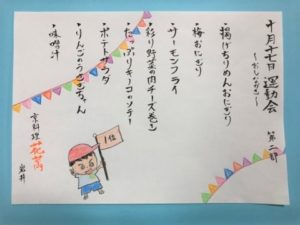 十月十七日 運動会 第二部
〜おしながき〜
・揚げちりめんおにぎり
・梅おにぎり
・サーモンフライ
・彩り野菜の肉チーズ巻き
・たっぷりキノコのソテー
・ポテトサラダ
・りんごのうさぎちゃん
・味噌汁
京料理 花萬
岩井
1位